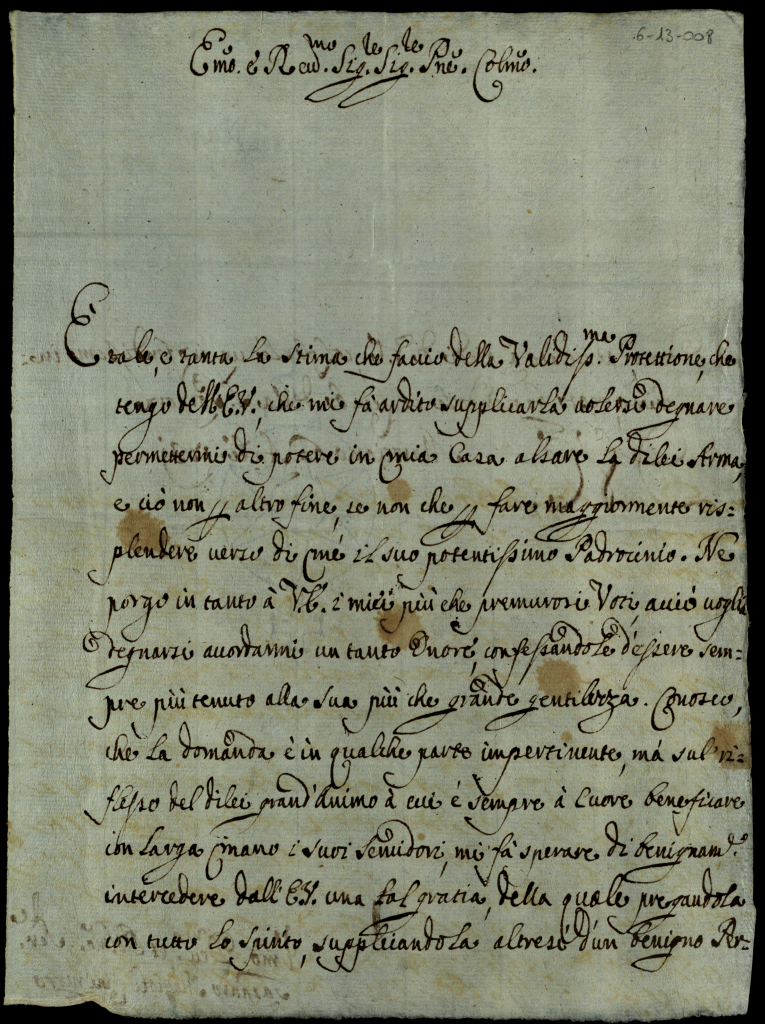 6-13-008
Emo. e Reud.mo Sig.re Sig.re Pne. Colmo.
È tale, e tanta la stima che faccio della Validiss.ma Protettione, che
tengo dell'E.V., che mi fà ardito supplicarla volersi degnare
permettermi di potere in mia Casa alzare la dilei Arma,
e ciò non p altro fine, se non che p fare maggiormente ris=
plendere verso di mé il suo potentissimo Padrocinio. Ne
porgo in tanto à V.E. i miei più che premurosi Voti, acciò voglia
degnarsi accordarmi un tanto Onore, confessandole d'essere sem=
pre più tenuto alla sua più che grande gentilezza. Conosco,
che la domanda è in qualche parte impertinente, mà sul ri=
flesso del dilei grand'Animo à cui è sempre à Cuore beneficare
con larga mano i suoi Servidori, mi fà sperare di benignam.e
intercedere dall'E.V. una tal gratia, della quale pregandola
con tutto lo spirito, supplicandola altresì d'un benigno Per=